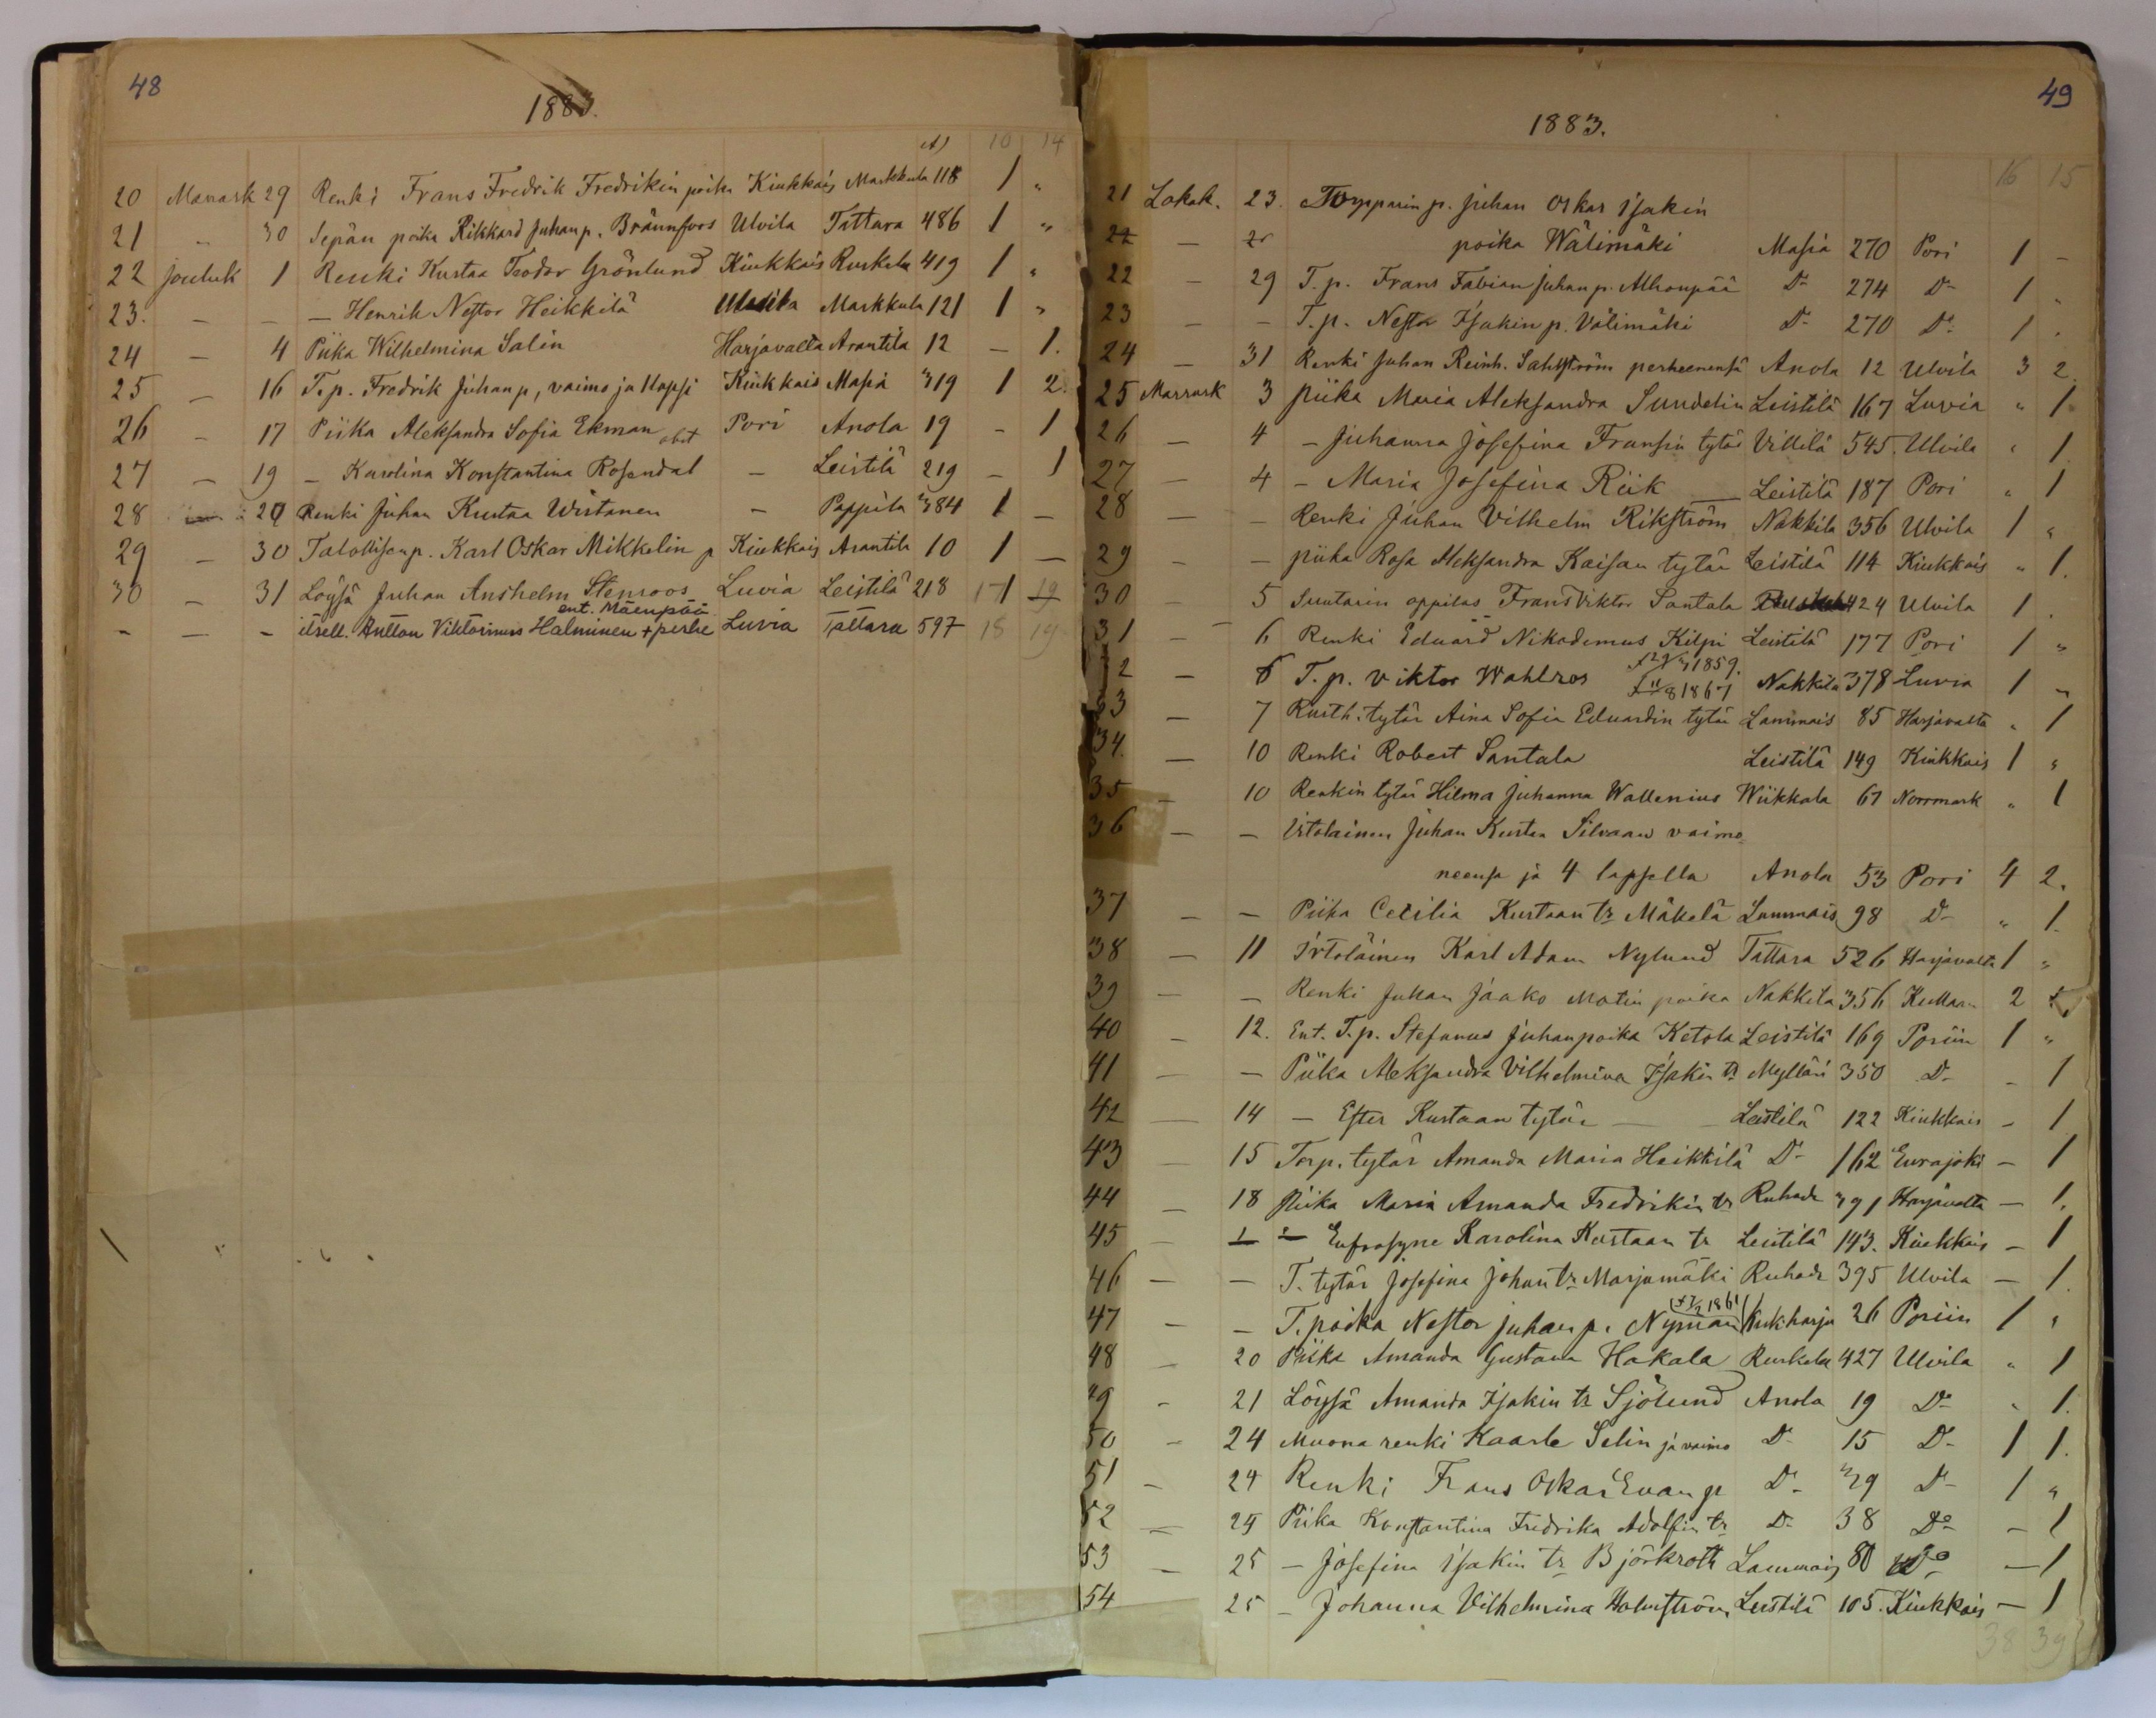 48
1883.
A) 10 14
20 Marrask 29 Renki Frans Fredrik Fredrikin poika Kiukkais Markkula 118 1 "
21 " 30 Sepän poika Rikkard Juhan p. Brännfors Ulvila Tattara 486 1 "
22 jouluk 1 Renki Kustaa Teodor Grönlund Kiukkais Ruskela 419 1 "
23. - - - Henrik Nestor Heikkilä Markkula 121 1 "
24 - 4 Piika Wilhelmina Salin Harjavalta Arantila 12 - 1.
25 - 16 T.p. Fredrik Juhan p, vaimo ja 1 lapsi Kiukkais Masia 319 1 2.
26 - 17 Piika Aleksandra Sofia Ekman Pori Anola 19 - 1
27 - 19 - Karolina Konstantina Rosendal - Leistilä 219 - 1
28 - 29 Renki Juhan Kustaa Wirtanen - Pappila 384 1 -
29 - 30 Talollisen p. Karl Oskar Mikkelin p Kiukkais Arantila 10 1 -
30 - 31 Löysä Juhan Anshelm Stenroos Luvia Leistilä 218 17 1 19
ent. Mäenpää
- - - itsell. Anttон Viktorinus Halminen + perhe Luvia Tattara 597 18 19
49
1883.
16 15
21 Lokak. 23. Torpparin p. Juhan Oskar Isakin
22 - poika Wälimäki Masia 270 Pori 1 -
22 - 29 T.p. Frans Fabian Juhan p. Alhonpää Do 274 Do 1 "
23 - - T.p. Nestor Isakin p. Välimäki Do 270 Do 1 "
24 - 31 Renki Juhan Reinh. Sahlström perheenensä Anola 12 Ulvila 3 2.
25 Marrask 3 piika Maria Aleksandra Sundelin Leistilä 167 Luvia " 1
26 - 4 - Juhanna Josefina Fransin tytär Villilä 545. Ulvila " 1
27 - 4 - Maria Josefina Riik Leistilä 187 Pori " 1
28 - - Renki Juhan Vilhelm Rikström Nakkila 356 Ulvila 1 "
29 - - piika Rosa Aleksandra Kaisan tytär Leistilä 114 Kiukkais " 1.
30 - 5 Suutarin oppilas Frans Viktor Santala 424 Ulvila 1 .
31 - 6 Renki Eduard Nikodemus Kilpi Leistilä 177 Pori 1 "
32 - 6 T.p. Viktor Wahlros Nakkila 378 Luvia 1 "
33 - 7 Rusth. tytär Aina Sofia Eduardin tytär Lammais 85 Harjavalta " 1
34. - 10 Renki Robert Santala Leistilä 149 Kiukkais 1 "
35 - 10 Renkin tytär Hilma Juhanna Wallenius Wiikkala 67 Norrmark " 1
36 - - Irtolainen Juhan Kustaa Silvaan vaimo
neensa ja 4 lapsella Anola 53 Pori 4 2.
37 - - Piika Cecilia Kustaan tr Mäkelä Lammais 98 Do " 1.
38 - 11 Irtoläinen Karl Adam Nylund Tattara 526 Harjavalta 1 "
39 - - Renki Juhan Jaako Matin poika Nakkila 356 Kullaan 2
40 - 12. Ent. T.p. Stefanus Juhanpoika Ketola Leistilä 169 Poriin 1 "
41 - - Piika Aleksandra Vilhelmina Isakin tr Mylläri 350 Do - 1
42 - 14 - Ester Kustaan tytär - Leistilä 122 Kiukkais - 1
43 - 15 Torp. tytär Amanda Maria Heikkilä Do 162 Eurajoki - 1
44 - 18 Piika Maria Amanda Fredrikin tr Ruhade 391 Harjavalta - 1.
45 - - - Eufrosyne Karolina Kustaan tr Leistilä 143. Kiukkais - 1
46 - - T. tytär Josefina Johan tr Marjamäki Ruhade 395 Ulvila - 1
47 - - T. poika Nestor Juhan p. Nyman Kukharju 26 Poriin 1 "
48 - 20 Piika Amanda Gustava Hakala Ruskela 427 Ulvila " 1
49 - 21 Löysä Amanda Isakin tr Sjölund Anola 19 Do " 1.
50 - 24 Muona renki Kaarle Selin ja vaimo Do 15 Do 1 1.
51 - 24 Renki Frans Oskar Evan p Do 29 Do 1 "
52 - 24 Piika Konstantina Fredrika Adolfin tr Do 38 Do - 1
53 - 25 - Josefina Isakin tr Björkroth Lammais 80 Do - 1
54 25 - Johanna Vilhelmina Holmström Leistilä 105. Kiukkais - 1
38 39